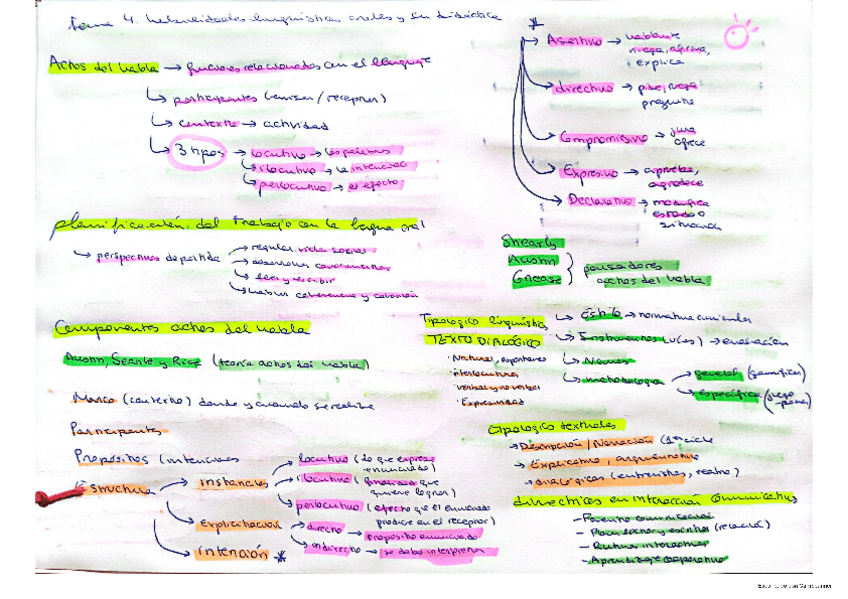 Tema 4. habilidades lingüísticas orales y su didáctica
Actos del habla → funciones relacionadas con el lenguaje
participantes (emisor / receptor)
contexto → actividad
3 tipos → locutivo → las palabras
ilocutivo → la intención
perlocutivo → el efecto
*
Asertivo → hablante
niega, afirma,
explica
directivo → pide, ruega
pregunta
Compromisivo → jura
ofrece
Expresivo → aprueba,
agradece
Declarativo → modifica
estado o
situación
planificación del trabajo con la lengua oral
perspectivas de partida → regular vida social
→ desarrollar conocimientos
→ leer y escribir
→ coherencia y cohesión
Searly
Austin
Grease
pensadores
actos del habla
Componentes actos del habla
Austin, Searle y Rice (teoría actos del habla)
Marco (contexto) donde y cuando se realiza
Participantes
Propósitos / intenciones
Estructura → instancias → locutivo (lo que expresa
enunciado)
ilocutivo (que
quiere lograr)
perlocutivo (efecto que el enunciado
produce en el receptor)
Explicitación → directo → propósito enunciado
indirecto → se debe interpretar
intención *
Tipología lingüística
TEXTO DIALÓGICO
· Natural, espontáneo
· interlocutores
· verbal y no verbal
· Expresividad
→ normativa curricular
Instrumentos → evaluación
metodología → general
específica (juego
Tipología textuales
→ Descripción / Narración (1er ciclo
→ Explicativo, argumentativo
→ dialógicos (entrevistas, teatro)
directrices en interacción comunicativa
- Fomento comunicación
- (relación)
- Rutinas interactivas
- Aprendizaje cooperativo